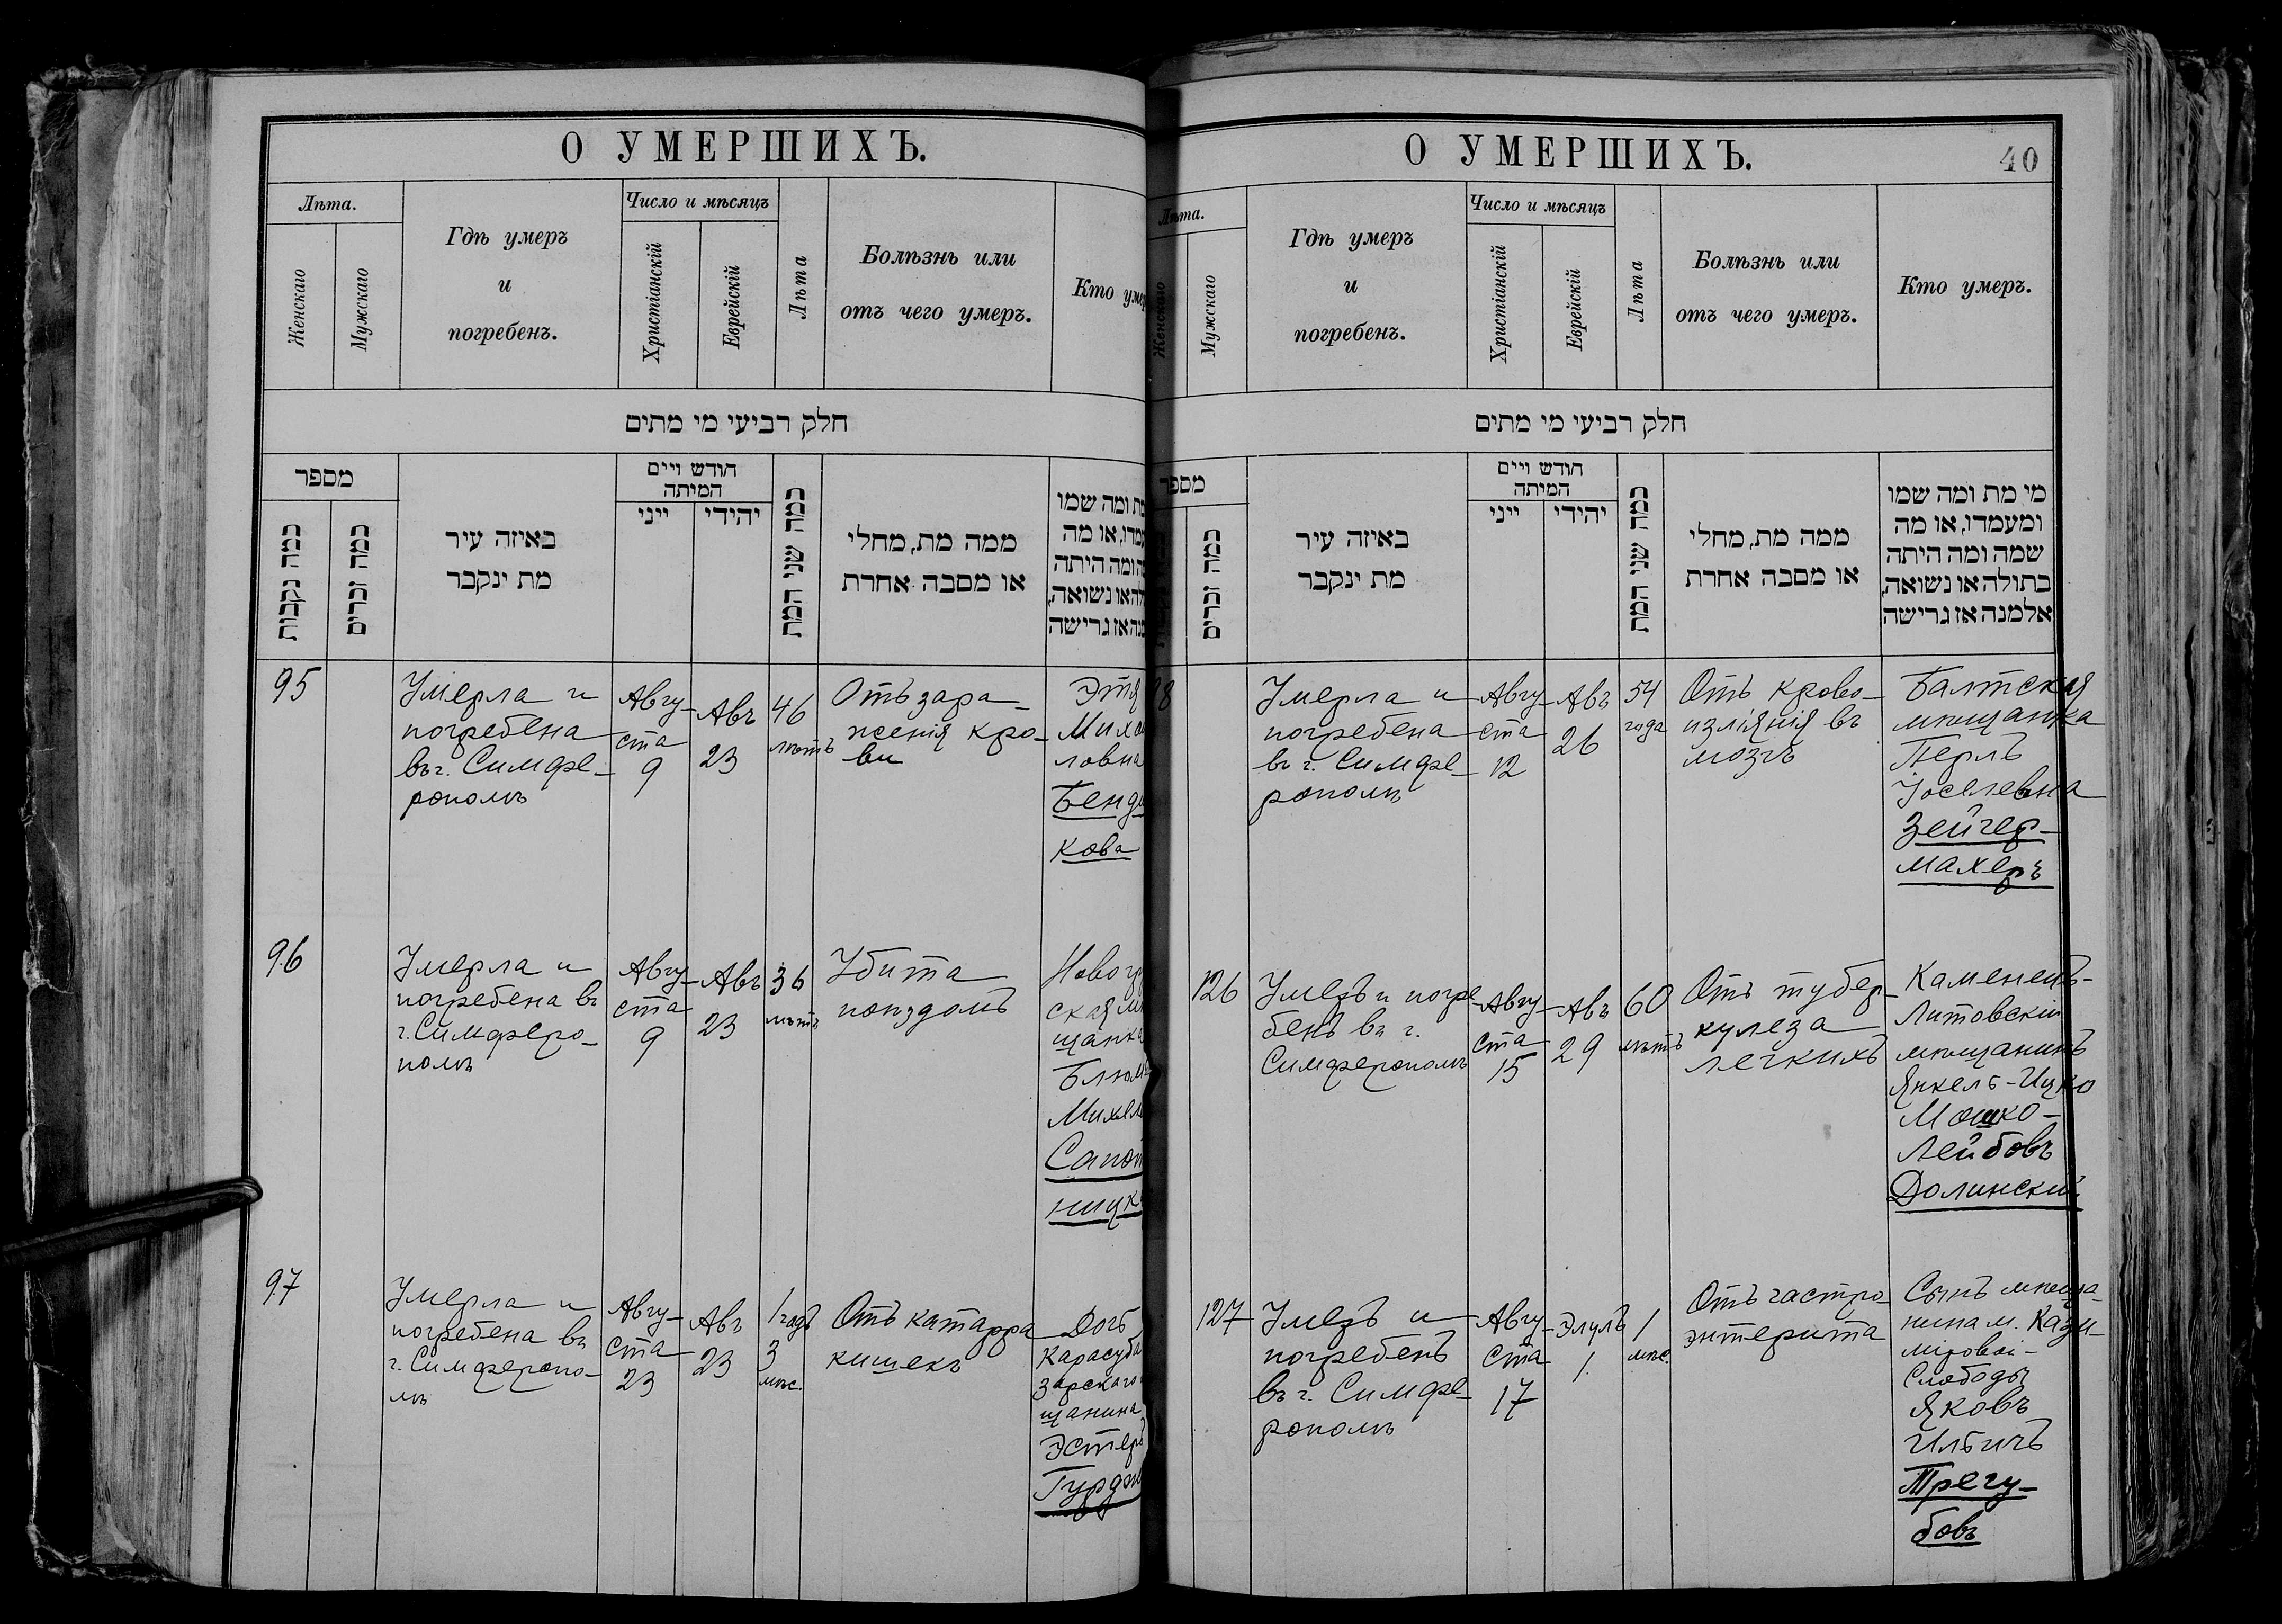 О УМЕРШИХЪ.
Лѣта.
Женскаго
Мужскаго
Гдѣ умеръ
и
погребенъ.
Число и мѣсяцъ
Христіанскій
Еврейскій
Лѣта
Болѣзнь или
отъ чего умеръ.
Кто умер
חלק רביעי מי מתים
מספר
כמה נקבות
כמה זכרים
באיזה עיר
מת ינקבר
חודש ויים
המיתה
ייני
יהידי
כמה שני המת
ממה מת, מחלי
או מסבה אחרת
מת ומה שמו
עמדו, או מה
ה ומה היתה
לה או נשואה,
מנה אז גרישה
95
Умерла и
погребена
въ г. Симфе-
рополѣ
Авгу-
ста
9
Авъ
23
46
лѣтъ
Отъ зара-
женія кро-
ви
Этя
Миха
ловна
Бенди
кова
96
Умерла и
погребена въ
г. Симферо-
полѣ
Авгу-
ста
9
Авъ
23
36
лѣтъ
Убита
поѣздомъ
Новогр
ская мѣ
щанка
Блюм
Михел
Сапот
ницк
97
Умерла и
погребена въ
г. Симферопо-
лѣ
Авгу-
ста
23
Авъ
23
1 годъ
3
мѣс.
Отъ катарра
кишекъ
Дочь
Карасуба
зарскаго
щанина
Эстеръ
Гурдж
О УМЕРШИХЪ.
40
Лѣта.
Женскаго
Мужскаго
Гдѣ умеръ
и
погребенъ.
Число и мѣсяцъ
Христіанскій
Еврейскій
Лѣта
Болѣзнь или
отъ чего умеръ.
Кто умеръ.
חלק רביעי מי מתים
מספר
כמה זכרים
באיזה עיר
מת ינקבר
חודש ויים
המיתה
ייני
יהידי
כמה שני המת
ממה מת, מחלי
או מסבה אחרת
מי מת ומה שמו
ומעמדו, או מה
שמה ומה היתה
בתולה או נשואה,
אלמנה אז גרישה
8
Умерла и
погребена
въ г. Симфе-
рополѣ
Авгу-
ста
12
Авъ
26
54
года
Отъ крово-
изліянія въ
мозгъ
Балтская
мѣщанка
Перлъ
Іоселевна
Зейгер-
махеръ
126
Умеръ и погре-
бенъ въ г.
Симферополѣ
Авгу-
ста
15
Авъ
29
60
лѣтъ
Отъ тубер-
кулеза
легкихъ
Каменецъ-
Литовскій
мѣщанинъ
Янкель-Ицко
Мошко-
Лейбовъ
Долинскій
127
Умеръ и
погребенъ
въ г. Симфе-
рополѣ
Авгу-
ста
17
Элулъ
1.
1
мѣс.
Отъ гастро-
энтерита
Сынъ мѣща-
нина м. Кази-
міровой-
Слободы
Яковъ
Ильичъ
Трегу-
бовъ